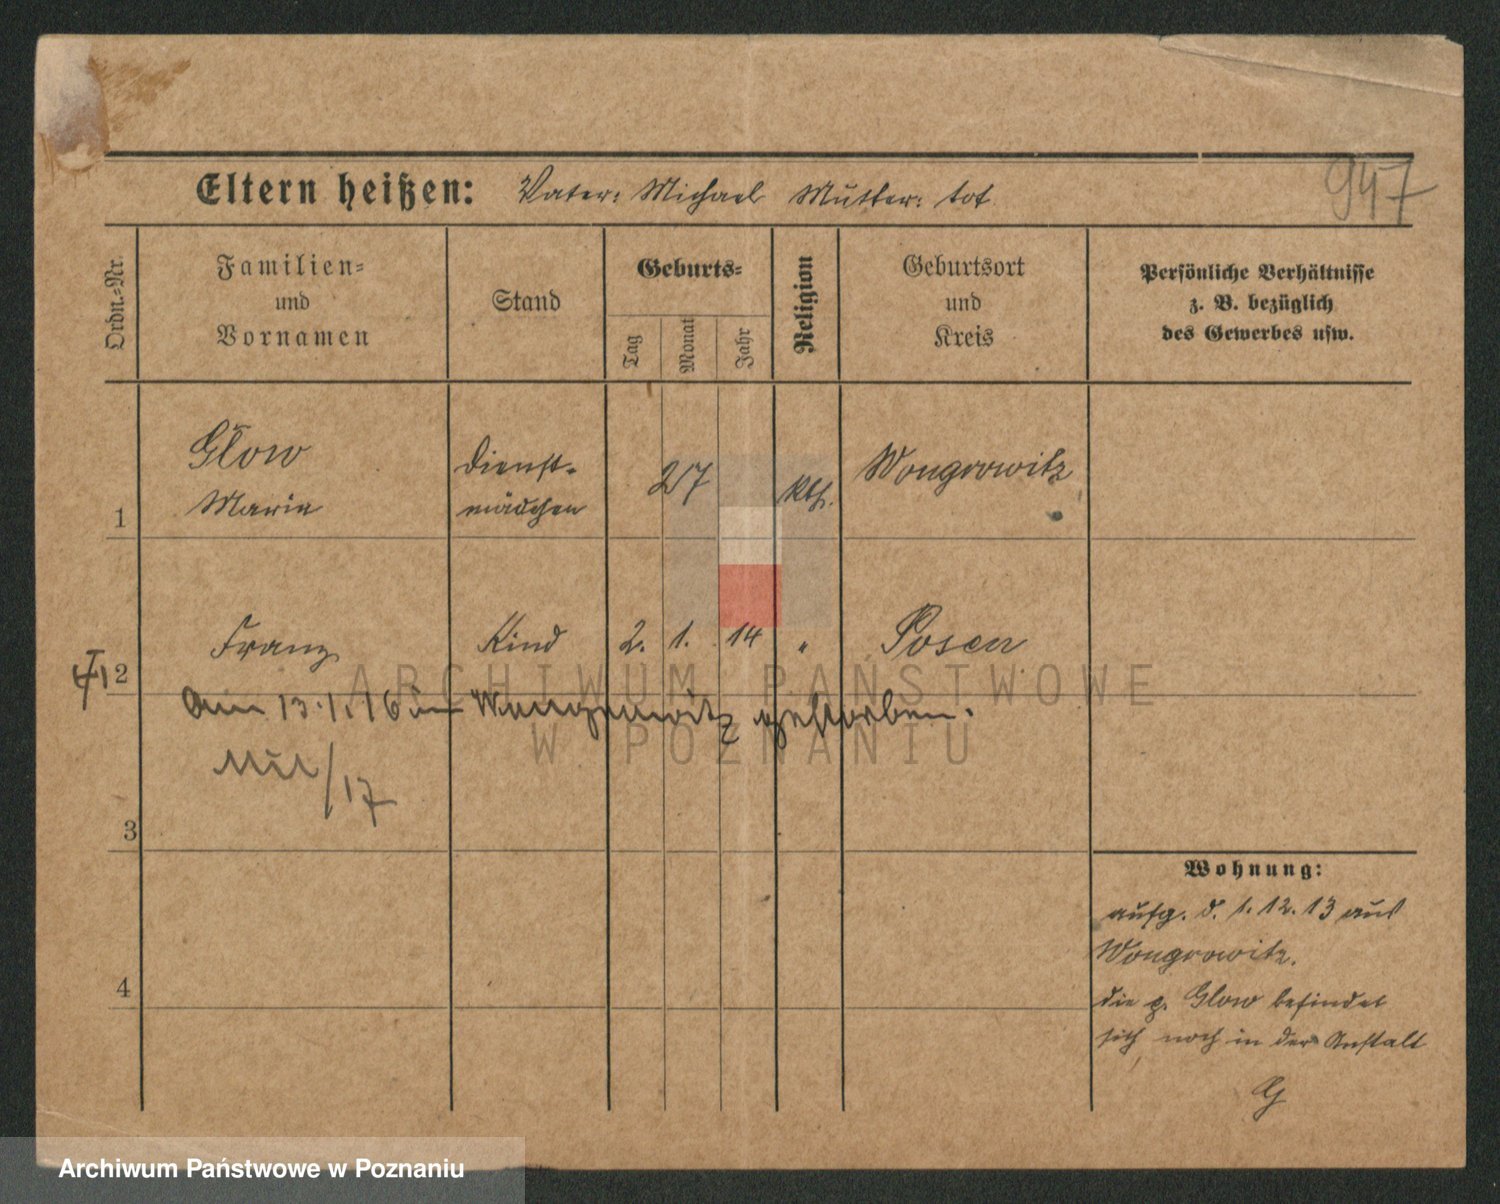 947
Eltern heißen: Vater: Michael Mutter: tot
Ordn.-Nr.
Familien-
und
Vornamen
Stand
Geburts-
Tag
Monat
Jahr
Religion
Geburtsort
und
Kreis
Persönliche Verhältnisse
z. B. bezüglich
des Gewerbes usw.
1
Glow
Maria
Dienst-
mädchen
27
kth.
Wongrowitz
2
Franz
Kind
2. 1. 14
"
Posen
Am 13.1.16 in Wongrowitz gestorben.
/17
3
4
Wohnung:
aufg. d. 1.12.13 aus
Wongrowitz.
die p. Glow befindet
sich noch in der Anstalt
G
ARCHIWUM PAŃSTWOWE
W POZNANIU
Archiwum Państwowe w Poznaniu